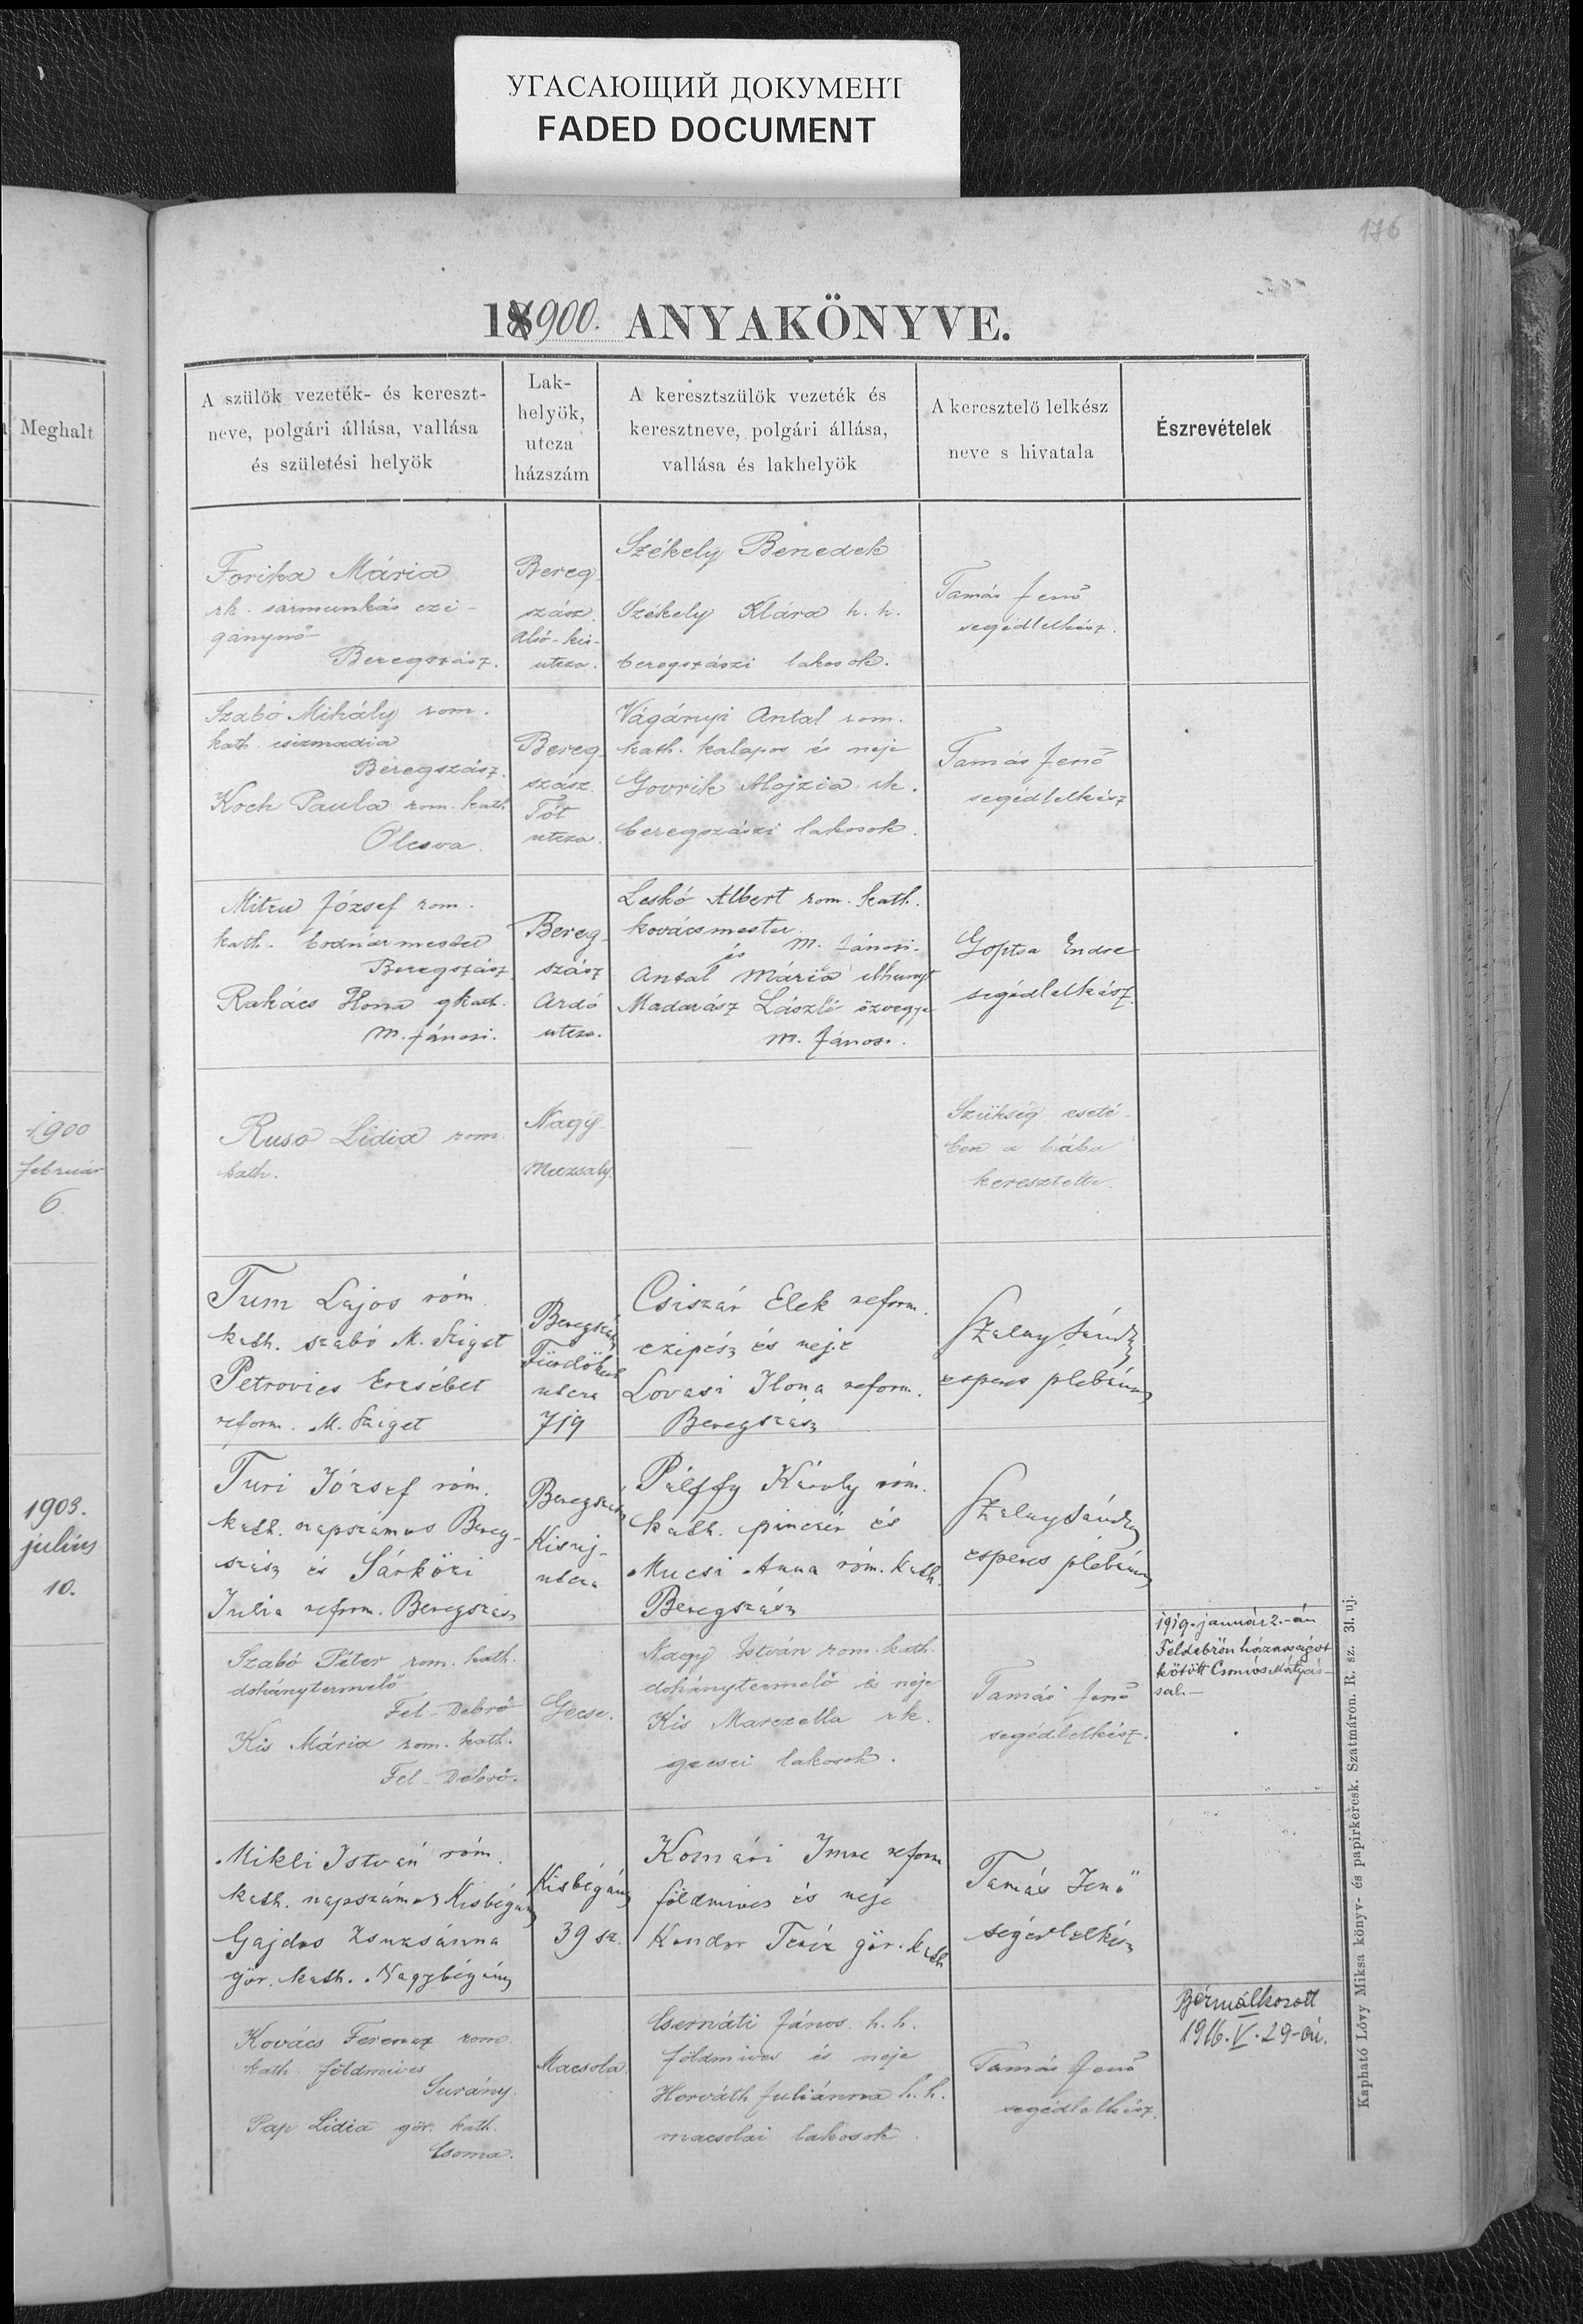 УГАСАЮЩИЙ ДОКУМЕНТ
FADED DOCUMENT
176
1900. ANYAKÖNYVE.
Meghalt
A szülök vezeték- és kereszt-
neve, polgári állása, vallása
és születési helyök
Lak-
helyök,
utcza
házszám
A keresztszülök vezeték és
keresztneve, polgári állása,
vallása és lakhelyök
A keresztelő lelkész
neve s hivatala
Észrevételek
Forika Mária
rk. sármunkás czi-
gánynő
Beregszász.
Bereg-
szász.
Alsó-kis-
utcza.
Székely Benedek
Székely Klára h. h.
beregszászi lakosok.
Tamás Jenő
segédlelkész.
Szabó Mihály rom.
kath. csizmadia
Beregszász.
Koch Paula rom. kath.
Olcsva.
Bereg-
szász.
Tót
utcza.
Vágányi Antal rom.
kath. kalapos és neje
Govrik Alojzia rk.
beregszászi lakosok.
Tamás Jenő
segédlelkész
Mitru József rom.
kath. bodnármester
Beregszász.
Rakács Ilona gkath.
M. Jánosi.
Bereg-
szász
Ardó
utcza.
Leskó Albert rom. kath.
kovácsmester.
és M. Jánosi.
Antal Mária elhunyt
Madarász László özvegye
M. Jánosi.
Gopsa Endre
segédlelkész.
1900
február
6.
Rusa Lidia rom.
kath.
Nagy-
Muzsaly.
—
Szükség eseté-
ben a bába
keresztelte.
Tum Lajos róm.
kath. szabó M. Sziget
Petrovics Erzsébet
reform. M. Sziget
Beregszász
Fürdőkert
utcza
719
Csiszár Elek reform.
czipész és neje
Lovasi Ilona reform.
Beregszász
Szalay Sándor
esperes plébános
1903.
július
10.
Turi József róm.
kath. napszámos Bereg-
szász és Sárközi
Julia reform. Beregszász
Beregszász
Kisuj-
utcza
Pálffy Károly róm.
kath. pinczér és
Mucsi Anna róm. kath.
Beregszász
Szalay Sándor
esperes plébános
Szabó Péter rom. kath.
dohánytermelő
Fel-Debrő
Kis Mária rom. kath.
Fel-Debrő.
Gecse.
Nagy István rom. kath.
dohánytermelő és neje
Kis Marczella rk.
gecsei lakosok.
Tamás Jenő
segédlelkész.
1919. január 2.-án
Feldebrőn házasságot
kötött Csomós Mátyás-
sal.-
Mikli István róm.
kath. napszámos Kisbégány
Gajdos Zsuzsánna
gör. kath. Nagybégány
Kisbégány
39 sz.
Komári Imre reform
földmives és neje
Kondor Teréz gör. kath
Tamás Jenő
segédlelkész
Kovács Ferencz rom.
kath földmives
Surány.
Pap Lidia gör. kath.
Csoma.
Macsola
Csernáti János h. h.
földmives és neje
Horváth Juliánna h. h.
macsolai lakosok.
Tamás Jenő
segédlelkész.
Bérmálkozott
1916. V. 29-én.
Kapható Lővy Miksa könyv- és papirkeresk. Szatmáron. R. sz. 31. uj.